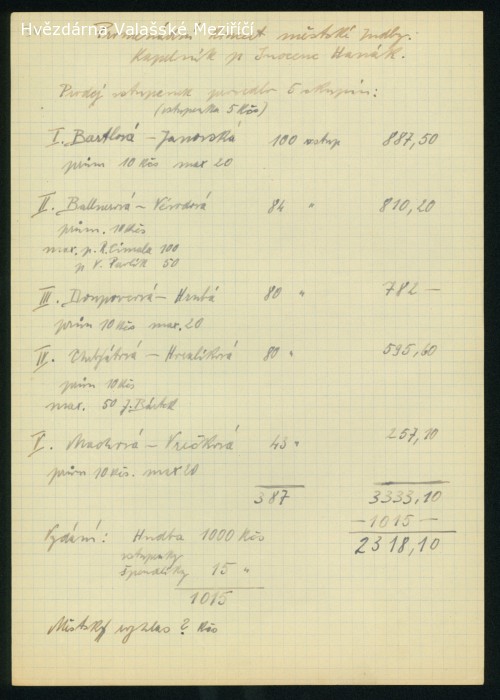 Hvězdárna Valašské Meziříčí
Promenádní koncert městské hudby.
Kapelník p. Inocenc Hanák.
Prodej vstupenek provedlo 5 skupin:
(vstupenka 5 Kčs)
I. Bartlová – Janovská 100 vstup 887,50
prům 10 Kčs max 20
II. 84 " 810,20
prům. 10 Kčs
max. p. R. Cimala 100
p V. Pavlík 50
III. – Hrubá 80 " 782 —
prům 10 Kčs max. 20
IV. 80 " 595,60
prům 10 Kčs
max. 50 J. Bártek
V. Machová – 43 " 257,10
prům 10 Kčs. max 20
387 3333,10
– 1015 —
2318,10
Vydání: Hudba 1000 Kčs
vstupenky
15 "
1015
Městský rozhlas ? Kčs